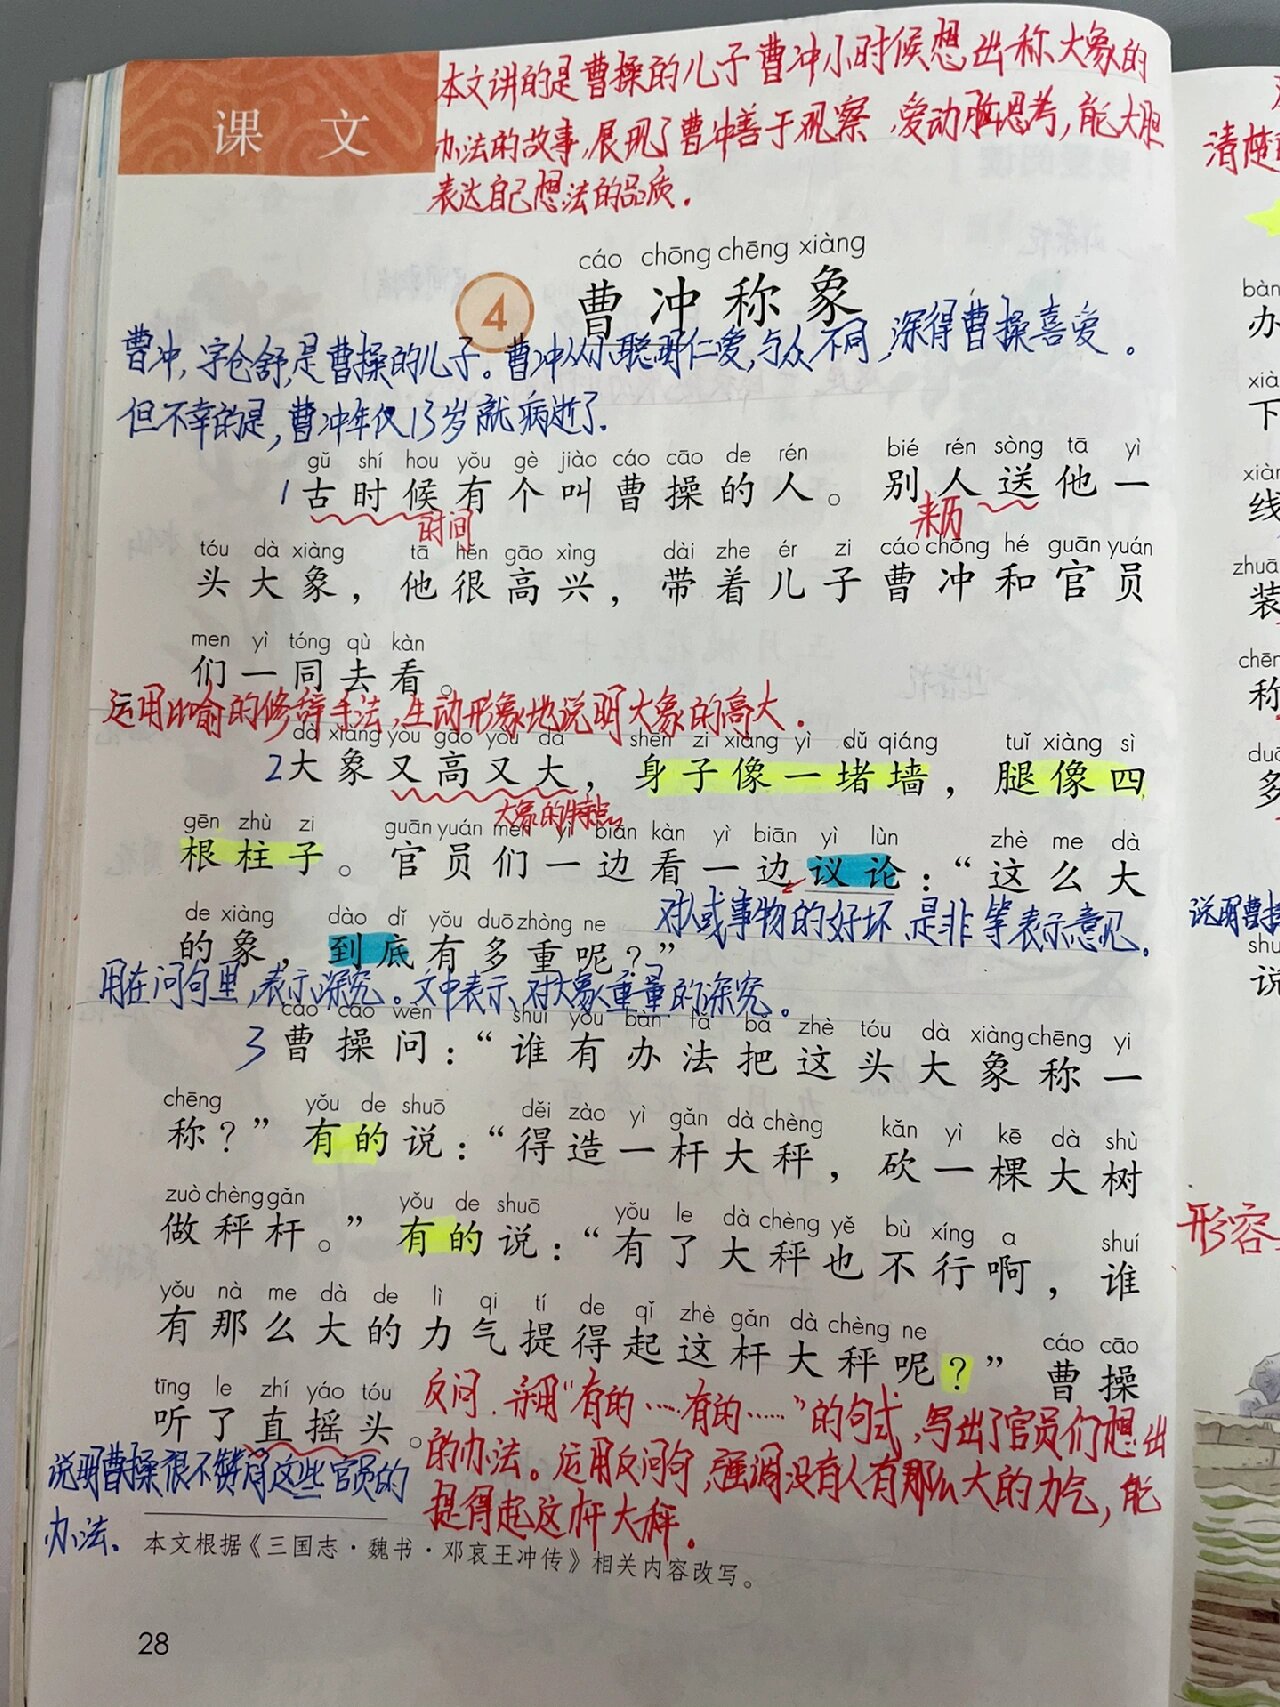 课 文
本文讲的是曹操的儿子曹冲小时候想出称大象的
办法的故事,展现了曹冲善于观察,爱动脑思考,能大胆
表达自己想法的品质。
cáo chōng chēng xiàng
4 曹冲称象
曹冲,字仓舒,是曹操的儿子。曹冲从小聪明仁爱,与众不同,深得曹操喜爱。
但不幸的是,曹冲年仅13岁就病逝了.
gǔ shí hou yǒu gè jiào cáo cāo de rén bié rén sòng tā yì
1古时候有个叫曹操的人。别人送他一
时间
来历
tóu dà xiàng tā hěn gāo xìng dài zhe ér zi cáo chōng hé guān yuán
头大象，他很高兴，带着儿子曹冲和官员
men yì tóng qù kàn
们一同去看。
运用比喻的修辞手法,生动形象地说明大象的高大。
dà xiàng yòu gāo yòu dà shēn zi xiàng yì dǔ qiáng tuǐ xiàng sì
2大象又高又大，身子像一堵墙，腿像四
大象的特点
gēn zhù zi guān yuán men yì biān kàn yì biān yì lùn zhè me dà
根柱子。官员们一边看一边议论：“这么大
de xiàng dào dǐ yǒu duō zhòng ne
的象，到底有多重呢？”
对人或事物的好坏、是非等表示意见。
用在问句里,表示深究。文中表示对大象重量的深究。
cáo cāo wèn shuí yǒu bàn fǎ bǎ zhè tóu dà xiàng chēng yi
3曹操问：“谁有办法把这头大象称一
chēng yǒu de shuō děi zào yì gǎn dà chèng kǎn yì kē dà shù
称？”有的说：“得造一杆大秤，砍一棵大树
zuò chèng gǎn yǒu de shuō yǒu le dà chèng yě bù xíng a shuí
做秤杆。”有的说：“有了大秤也不行啊，谁
yǒu nà me dà de lì qi tí de qǐ zhè gǎn dà chèng ne cáo cāo
有那么大的力气提得起这杆大秤呢？”曹操
tīng le zhí yáo tóu
听了直摇头。
反问.采用“有的……有的……”的句式,写出了官员们想出
的办法。运用反问句,强调没有人有那么大的力气,能
提得起这杆大秤。
说明曹操很不赞同这些官员的
办法.
本文根据《三国志·魏书·邓哀王冲传》相关内容改写。
28
清楚
bàn
办
xià
下
xiàn
线
zhuā
装
chēn
称
duō
多
说明曹
shu
说
形容